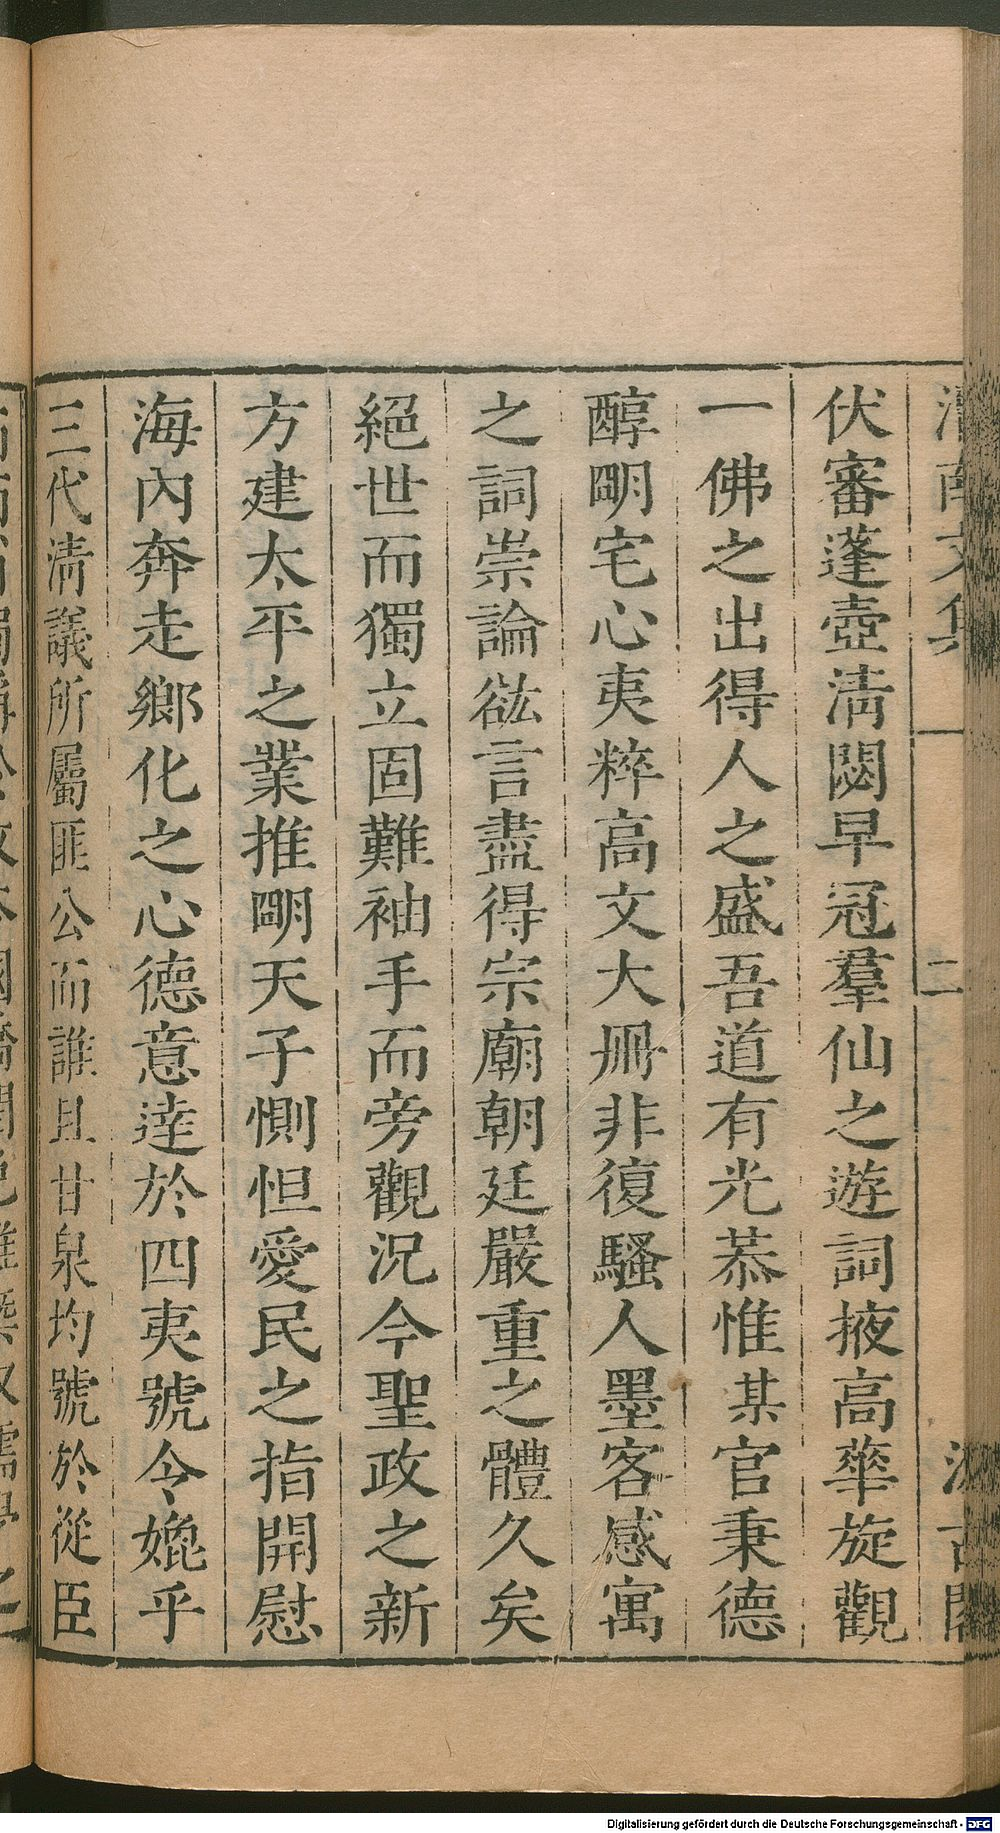 渭南文集
二
汲古閣
伏審蓬壺淸閟早冠羣仙之遊詞掖高華旋觀
一佛之出得人之盛吾道有光恭惟某官秉德
醇朙宅心夷粹高文大冊非復騷人墨客感寓
之詞崇論谹言盡得宗廟朝廷嚴重之體久矣
絕世而獨立固難袖手而旁觀況今聖政之新
方建太平之業推朙天子惻怛愛民之指開慰
海內奔走鄉化之心德意達於四夷號令媲乎
三代淸議所屬匪公而誰且甘泉均號於從臣
Digitalisierung gefördert durch die Deutsche Forschungsgemeinschaft - DFG